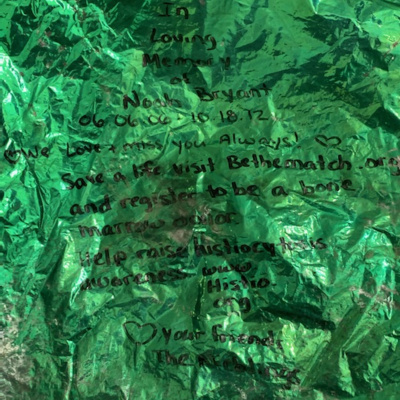 In
Loving
Memory
of
Noah Bryant
06.06.06 - 10.18.12
♡ We Love + miss you Always! ♡
Save a life, visit Bethematch.org
and register to be a bone
marrow donor
Help raise histiocytosis
awareness www.
Histio.
org
♡ your friends
The